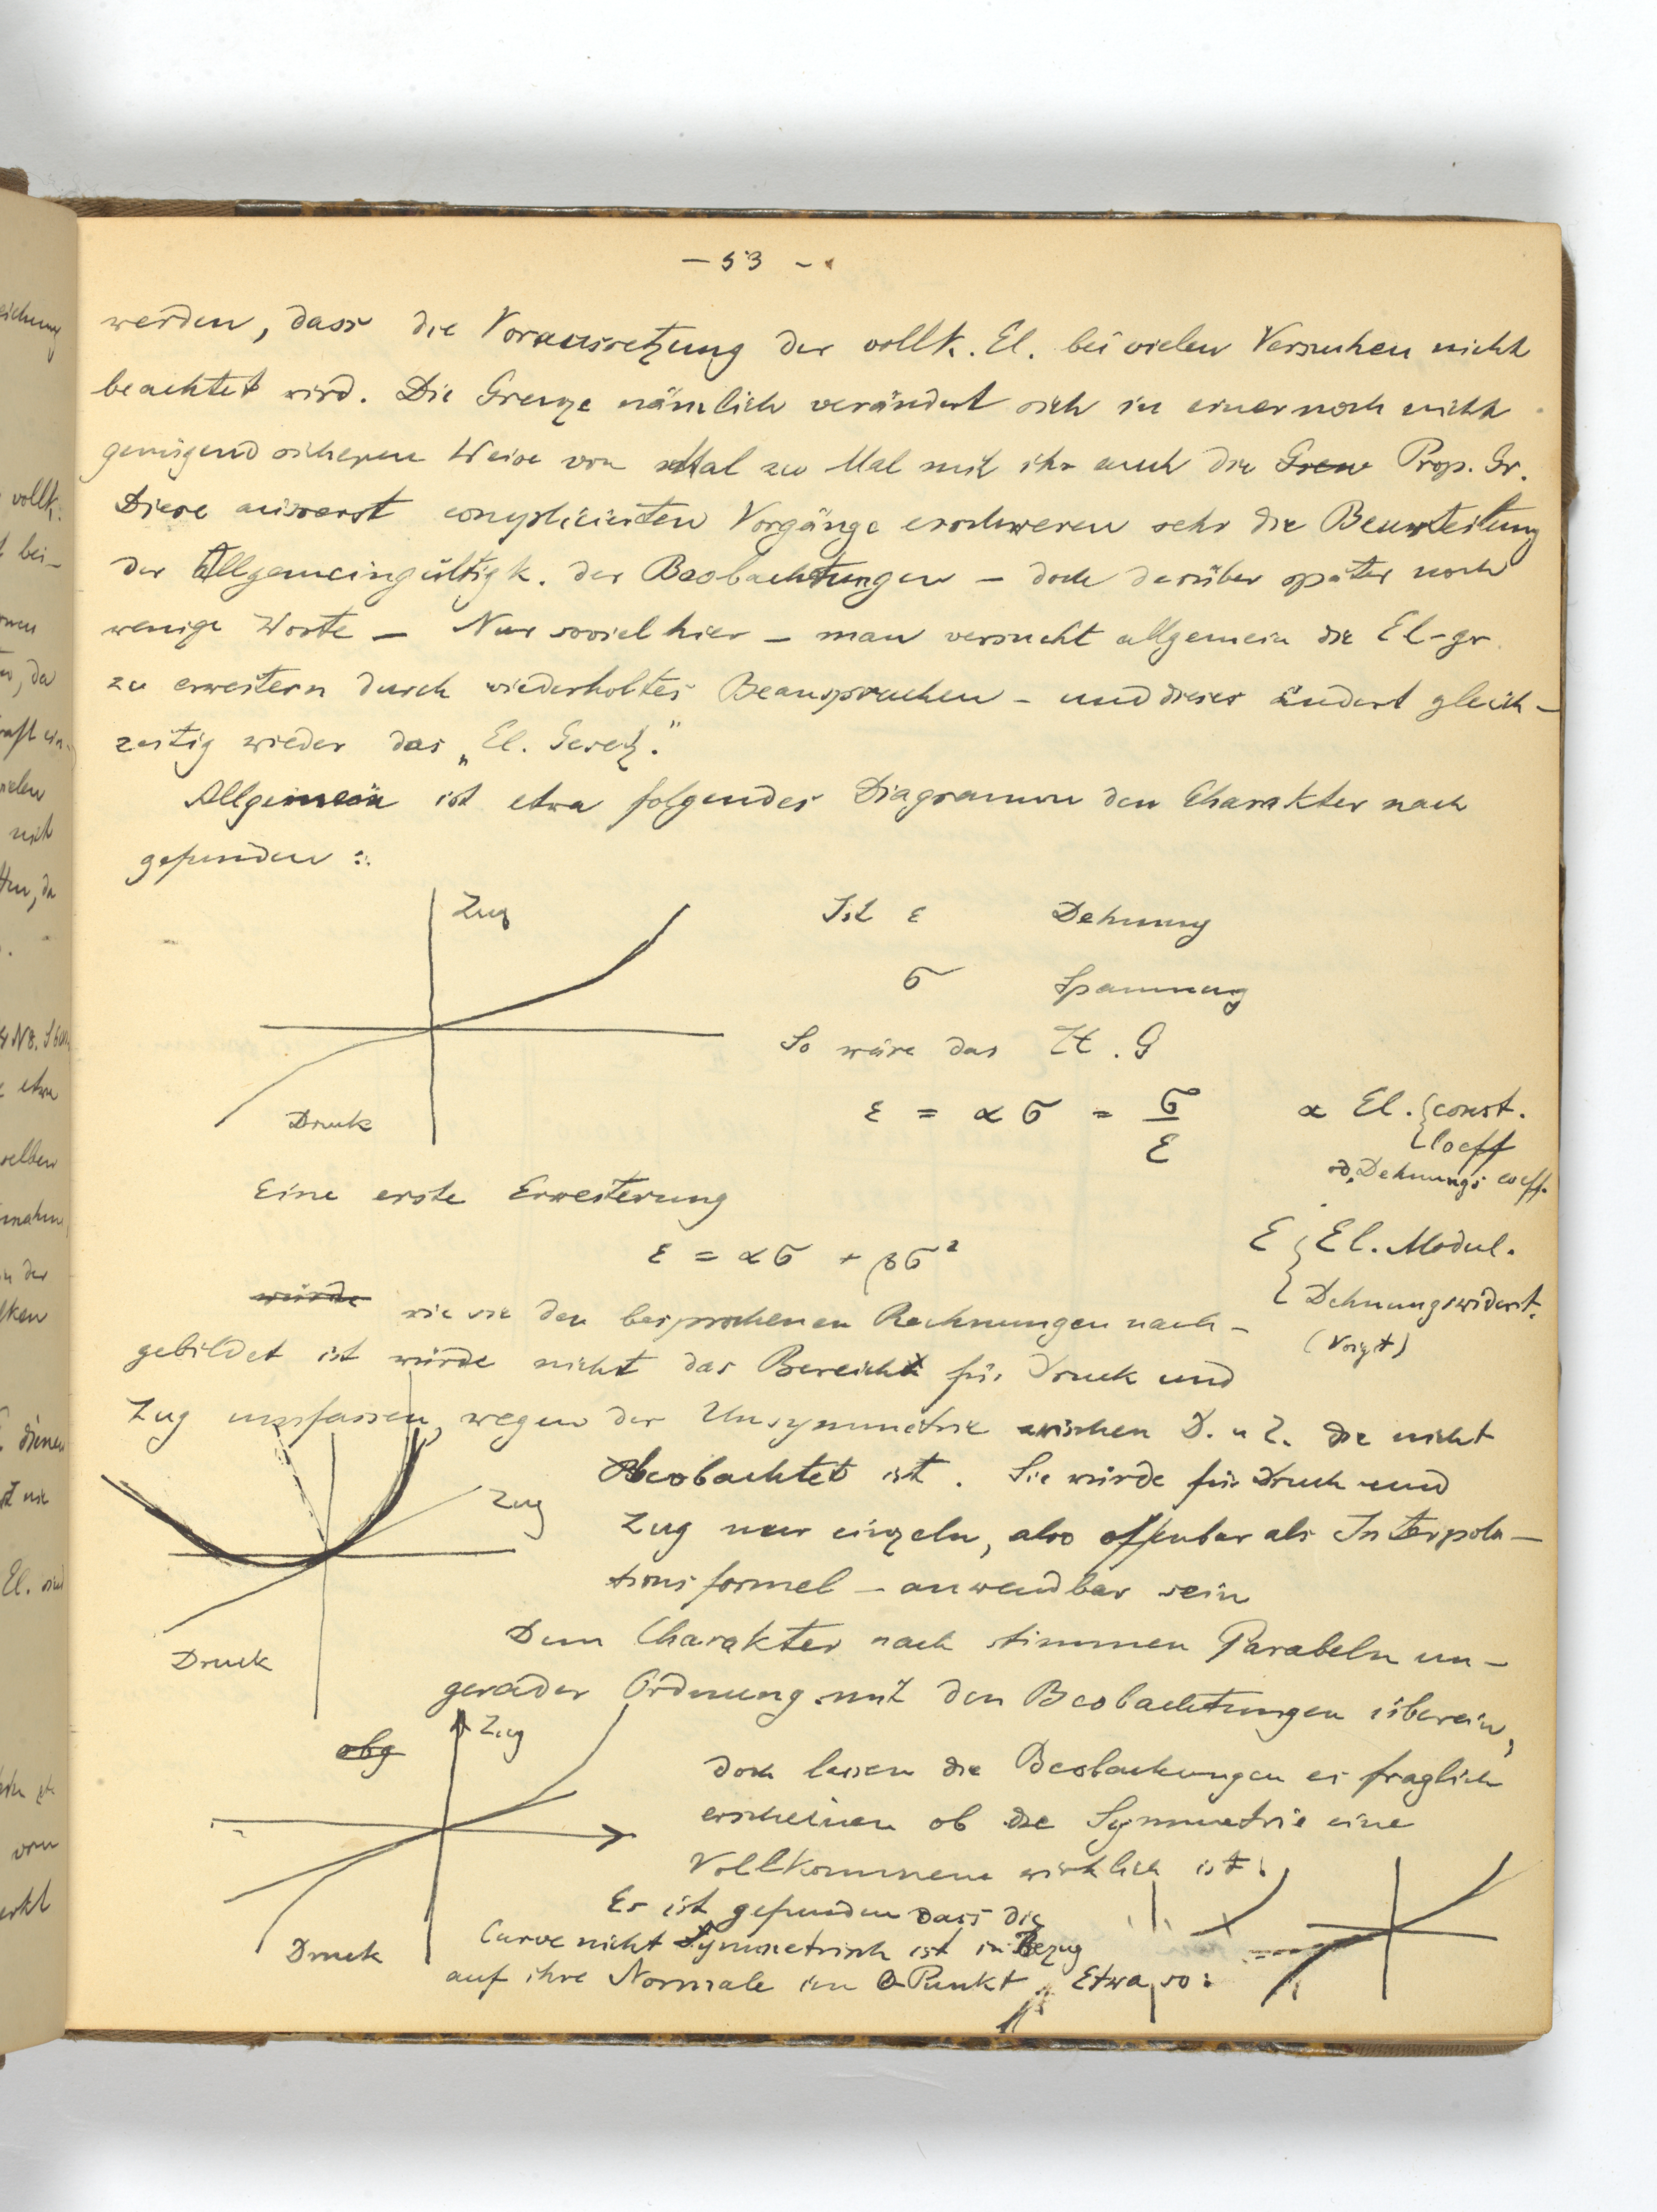 – 53 –
werden, dass die Voraussetzung der vollk. El. bei vielen Versuchen nicht
beachtet wird. Die Grenze nämlich verändert sich in einer noch nicht
genügend sicheren Weise von Mal zu Mal mit ihr auch die Gren Prop. Gr.
Diese äusserst complicierten Vorgänge erschweren sehr die Beurteilung
der Allgemeingültigk. der Beobachtungen – doch darüber später noch
wenige Worte – Nur soviel hier – man versucht allgemein die El-gr.
zu erweitern durch wiederholtes Beanspruchen – und dieses ändert gleich-
zeitig wieder das „El. Gesetz."
Allgemein ist etwa folgendes Diagramm den Charakter nach
gefunden :
Zug
Druck
Ist ε Dehnung
σ Spannung
So wäre das H. G
ε = α σ = σ/E
α El. { const.
Coeff
od. Dehnungs coeff.
Eine erste Erweiterung
ε = ασ + βσ²
E { El. Modul.
Dehnungswiderst.
(Voigt)
würde wie sie den besprochenen Rechnungen nach-
gebildet ist würde nicht das Bereich für Druck und
Zug umfassen, wegen der Unsymmetrie zwischen D. u Z. die nicht
Beobachtet ist. Sie würde für Druck und
Zug nur einzeln, also offenbar als Interpola-
tionsformel – anwendbar sein
Zug
Druck
Dem Charakter nach stimmen Parabeln un-
gerader Ordnung mit den Beobachtungen überein,
doch lassen die Beobachtungen es fraglich
erscheinen ob die Symmetrie eine
Vollkommene wirklich ist.
obg
Zug
Druck
Es ist gefunden dass die
Curve nicht Symmetrisch ist in Bezug
auf ihre Normale im 0 Punkt. Etwa so: